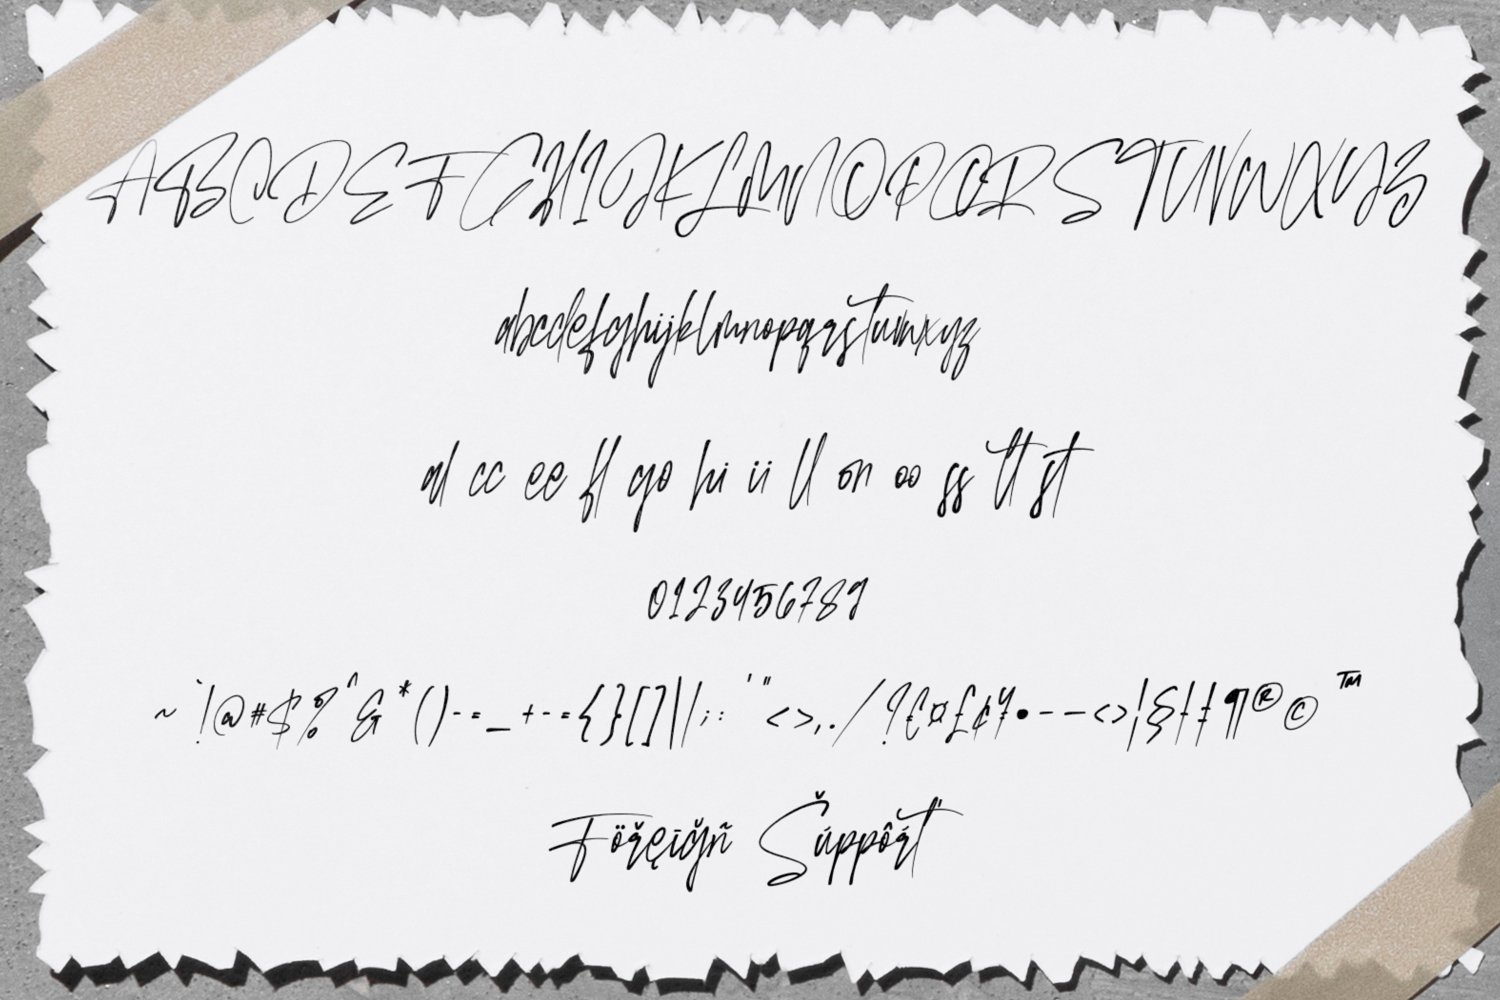 ABCDEFGHIJKLMNOPQRSTUVWXYZ
abcdefghijklmnopqrstuvwxyz
al cc ee fl go hi ii ll on oo ss tt st
0123456789
~`!@#$%^&*()-=_+-={}[]|\;:'"<>,./?€¤£¢¥•–—<>¦§†‡¶®©™
Föřęīğñ Šúppôŕť